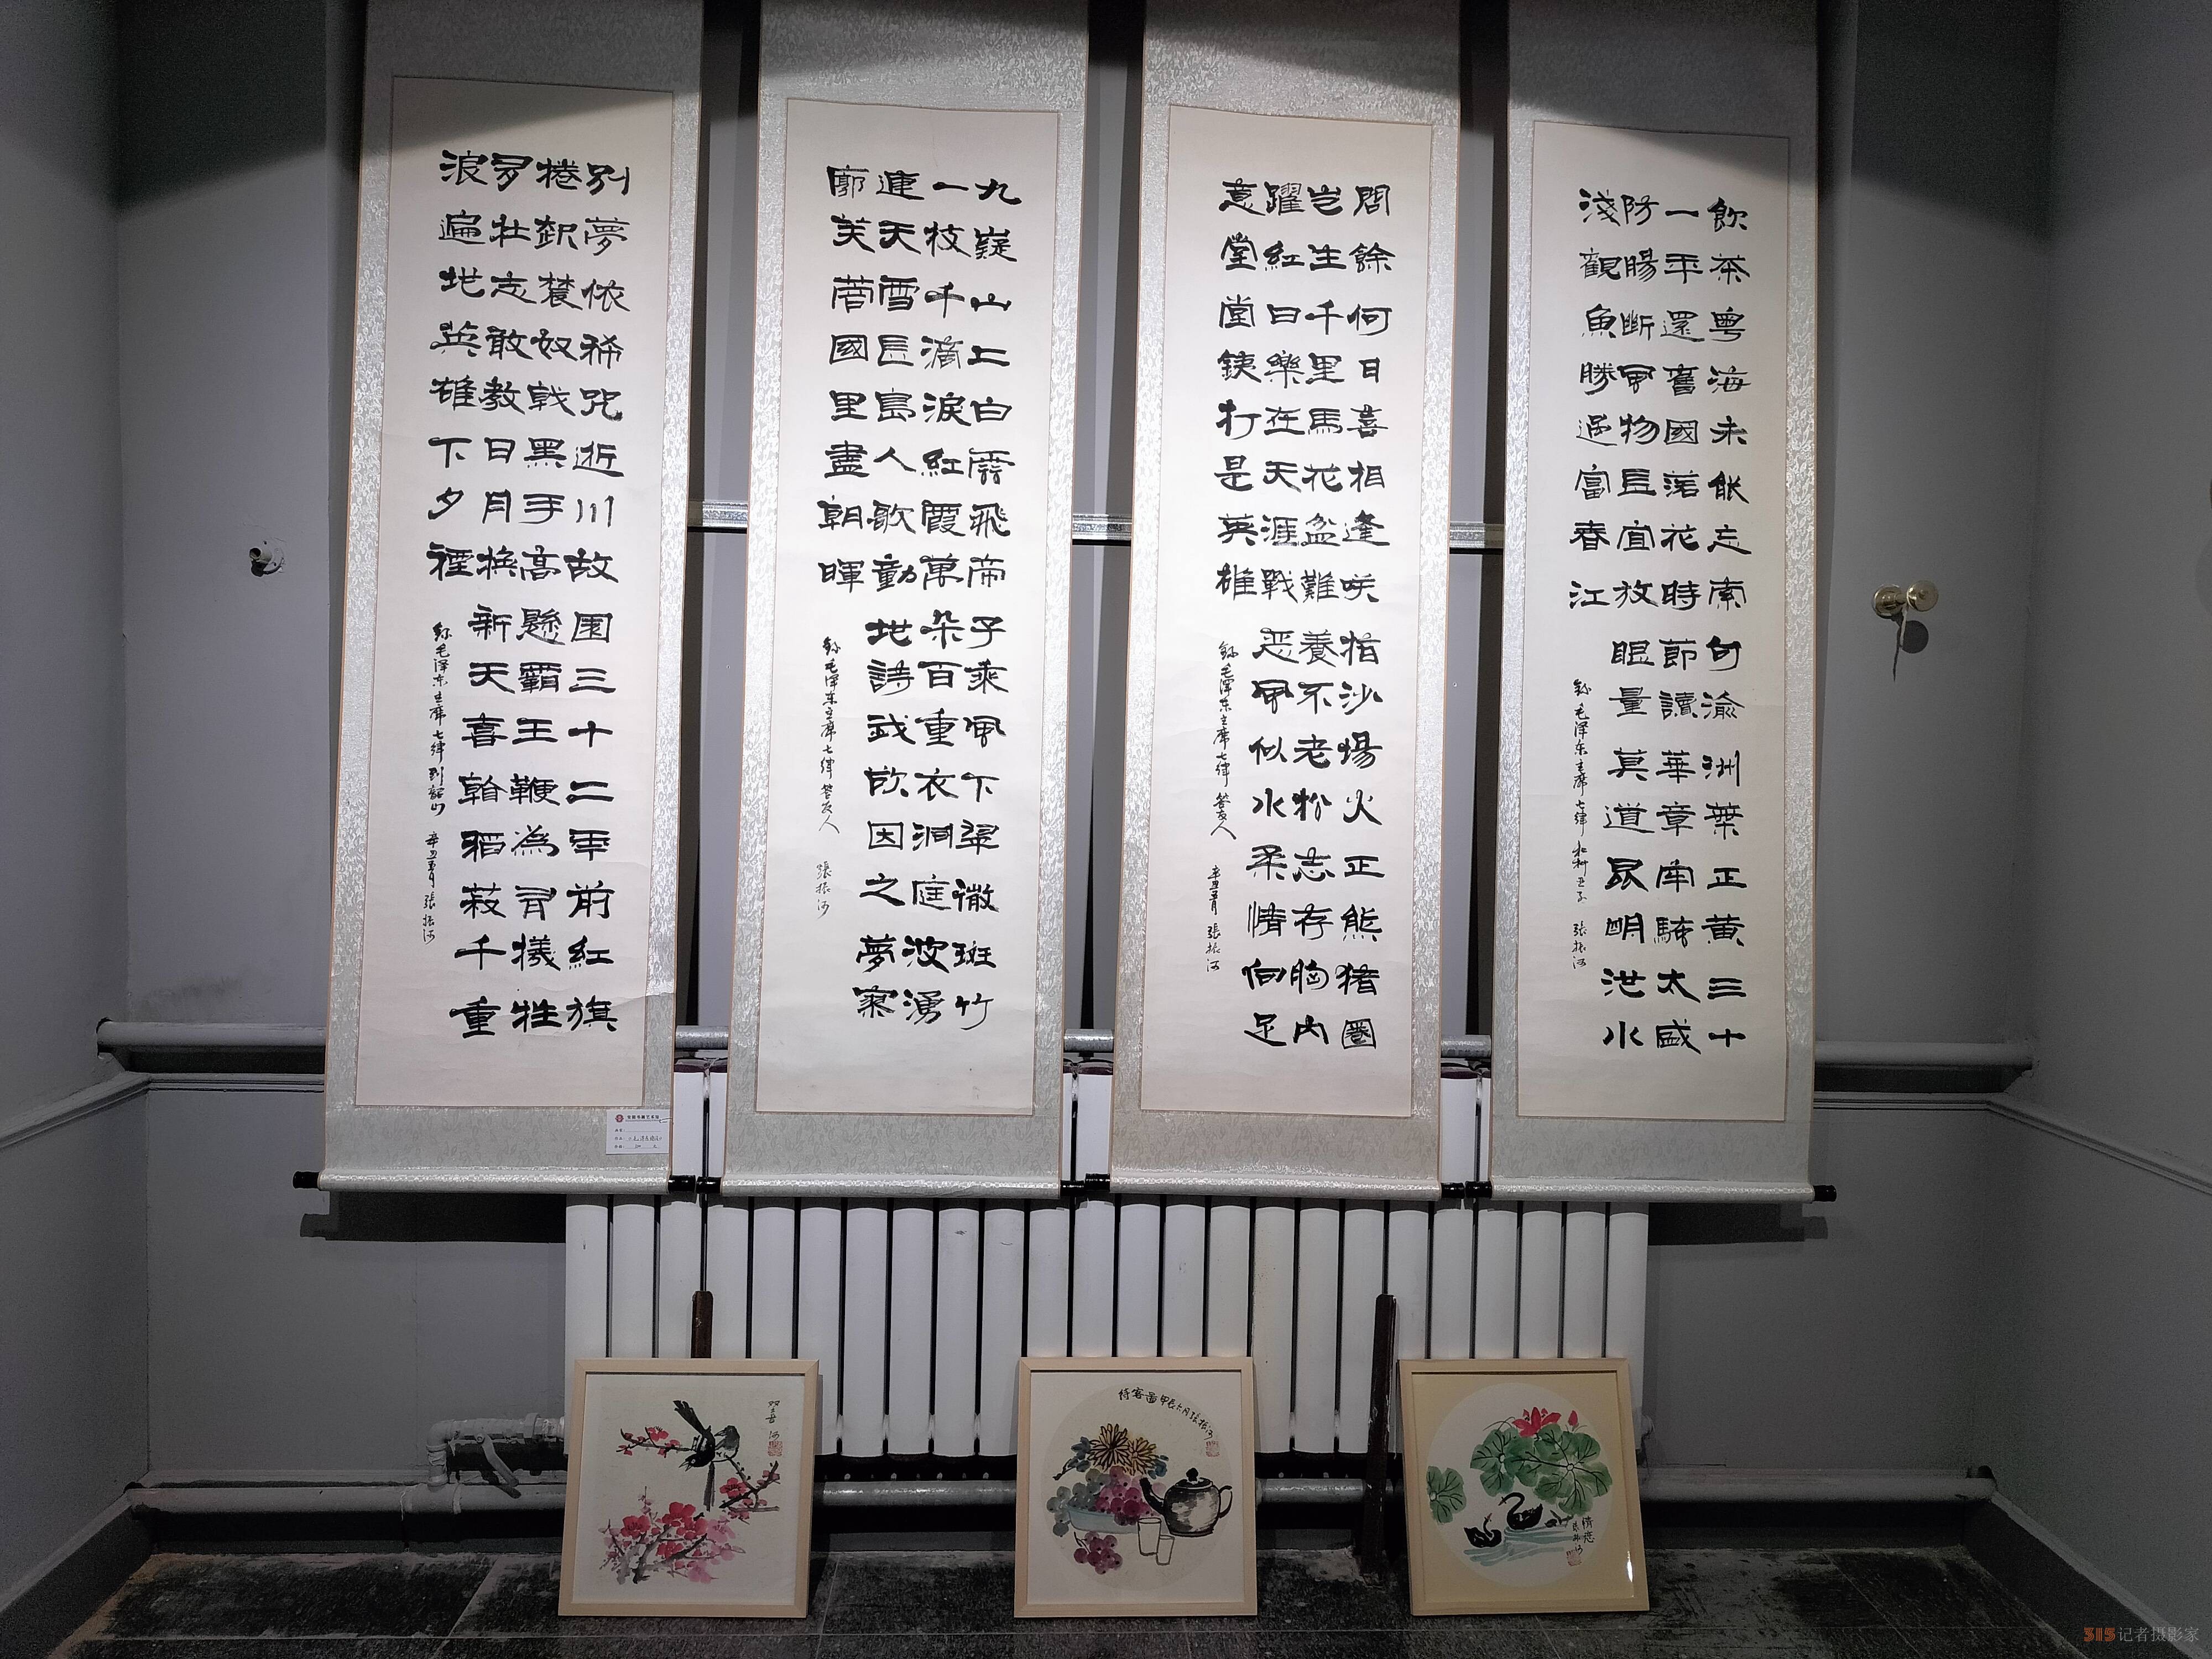 别夢依稀咒逝川故园三十二年前紅旗
捲起農奴戟黑手高懸霸王鞭為有犠牲
多壮志敢教日月换新天喜看稻菽千重
浪遍地英雄下夕煙
録毛泽东主席七律到韶山 辛丑春月 張振河
九嶷山上白雲飛帝子乘風下翠微斑竹
一枝千滴淚紅霞萬朵百重衣洞庭波湧
連天雪長島人歌動地詩我欲因之夢寥
廓芙蓉國里盡朝暉
録毛泽东主席七律答友人 張振河
問餘何日喜相逢咲指沙場火正熊猪圈
岂生千里馬花盆難養不老松志存胸内
躍紅日樂在天涯戰恶風似水柔情何足
意堂堂鉄打是英雄
録毛泽东主席七律答友人 辛丑春月 張振河
飲茶粤海未能忘索句渝洲葉正黄三十
一年還舊國落花時節讀華章牢騷太盛
防腸斷風物長宜放眼量莫道昆明池水
淺觀魚勝過富春江
録毛泽东主席七律和柳亚子 張振河
待客圖甲辰六月張振河
315记者摄影家